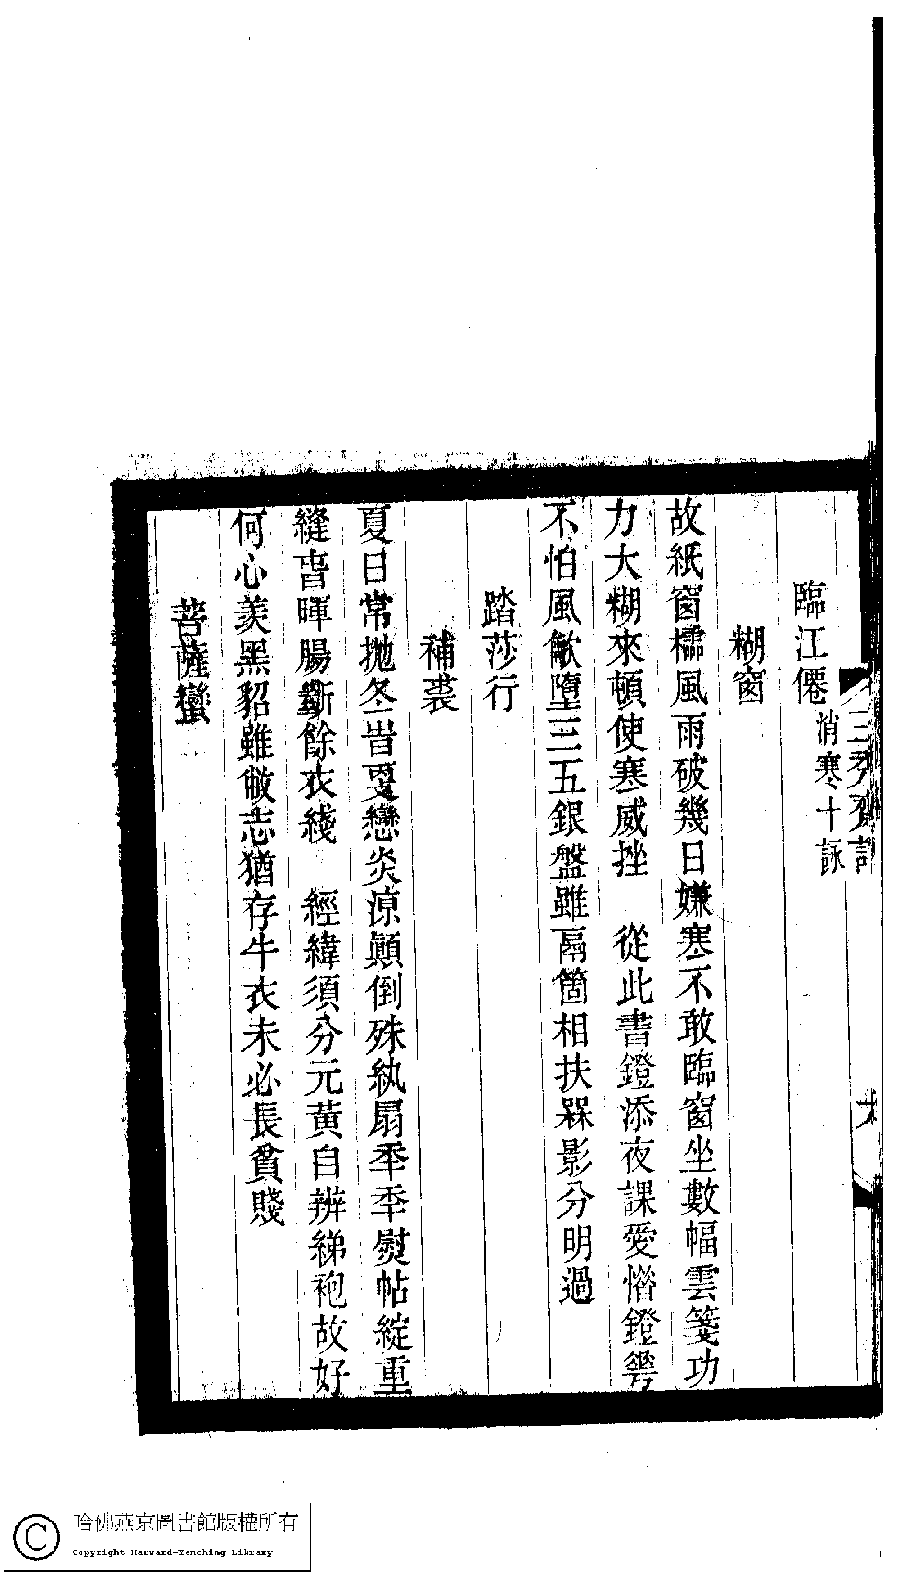 臨江僊消寒十詠
糊窗
故紙窗櫺風雨破幾日嫌寒不敢臨窗坐數幅雲箋功
力大糊來頓使寒威挫　從此書鐙添夜課愛惜鐙
不怕風歘墮三五銀盤雖鬲箇相扶槑影分明過
踏莎行
補裘
夏日常拋冬旹叓戀炎涼顛倒殊紈扇秊秊熨帖綻重
縫旾暉腸斷餘衣綫　經緯須分元黃自辨綈袍故好
何心羨黑貂雖敝志猶存牛衣未必長貧賤
菩薩蠻
哈佛燕京圖書館版權所有
Copyright Harvard-Yenching Library